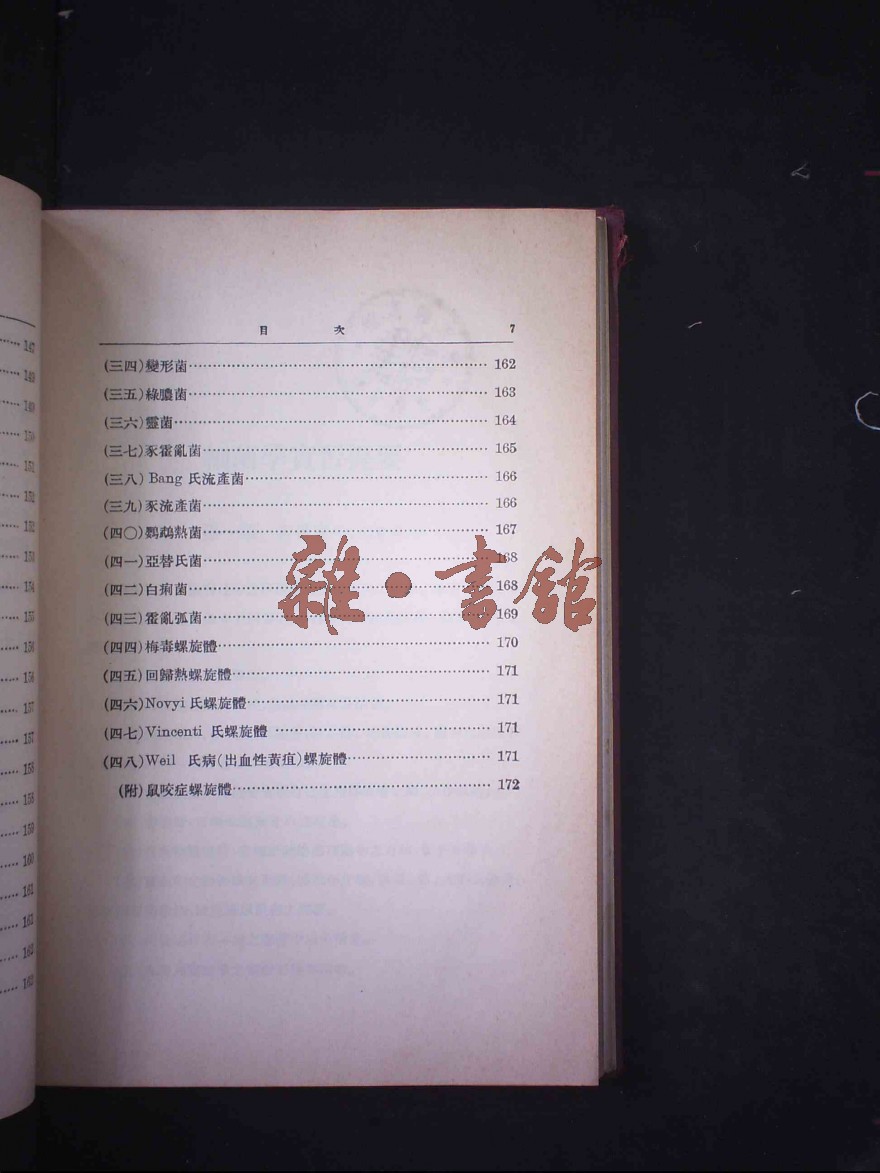 147
149
149
150
151
152
152
153
154
155
156
156
157
157
158
158
159
160
161
162
162
163
目 次 7
(三四)變形菌 162
(三五)綠膿菌 163
(三六)靈菌 164
(三七)豕霍亂菌 165
(三八) Bang 氏流產菌 166
(三九)豕流產菌 166
(四〇)鸚鵡熱菌 167
(四一)亞替氏菌 168
(四二)白痢菌 168
(四三)霍亂弧菌 169
(四四)梅毒螺旋體 170
(四五)回歸熱螺旋體 171
(四六)Novyi 氏螺旋體 171
(四七)Vincenti 氏螺旋體 171
(四八)Weil 氏病(出血性黃疸)螺旋體 171
(附)鼠咬症螺旋體 172
雜·書館